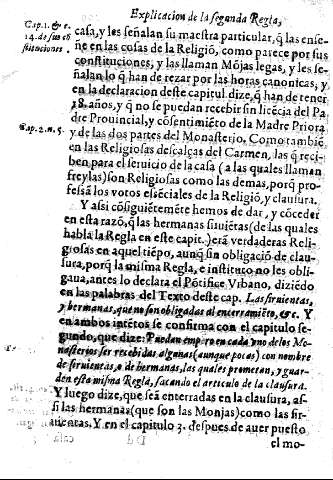 Explicacion de la segunda Regla,
Cap. 1. & c.
14. de sus cõ
stituciones.
casa, y les señalan su maestra particular, q̃ las ense-
ñe en las cosas de la Religiõ, como parece por sus
constituciones, y las llaman Mõjas legas, y les se-
ñalan lo q̃ han de rezar por las horas canonicas, y
en la declaracion deste capitul dize, q̃ han de tener
18. años, y q̃ no se puedan recebir sin licẽcia del Pa
Cap. 2. n. 5.
dre Prouincial, y cõsentimiẽto de la Madre Priora
y de las dos partes del Monasterio. Como tambiẽ
en las Religiosas descalças del Carmen, las q̃ reci-
ben para el seruicio de la casa (a las quales llaman
freylas) son Religiosas como las demas, porq̃ pro-
fessã los votos essẽciales de la Religiõ, y clausura.
Y assi cõsiguiẽtemẽte hemos de dar, y cõceder
en esta razõ, q̃ las hermanas siruiẽtas (de las quales
habla la Regla en este capit.) erã verdaderas Reli-
giosas en aquel tiẽpo, aunq̃ sin obligaciõ de clau-
sura, porq̃ la misma Regla, e instituto no les obli-
gaua, antes lo declara el Põtifice Vrbano, diziẽdo
en las palabras del Texto deste cap. Las siruientas,
y hermanas, que no son obligadas al enterramiẽto, &c. Y
en ambos intẽtos se confirma con el capitulo se-
gundo, que dize: Puedan empero en cada vno de los Mo-
nasterios ser recebidas algunas (aunque pocas) con nombre
de siruientas, o de hermanas, las quales prometan, y guar-
den esta misma Regla, sacando el articulo de la clausura.
Y luego dize, que seã enterradas en la clausura, as-
si las hermanas (que son las Monjas) como las sir-
uientas. Y en el capitulo 3. despues de auer puesto
el mo-